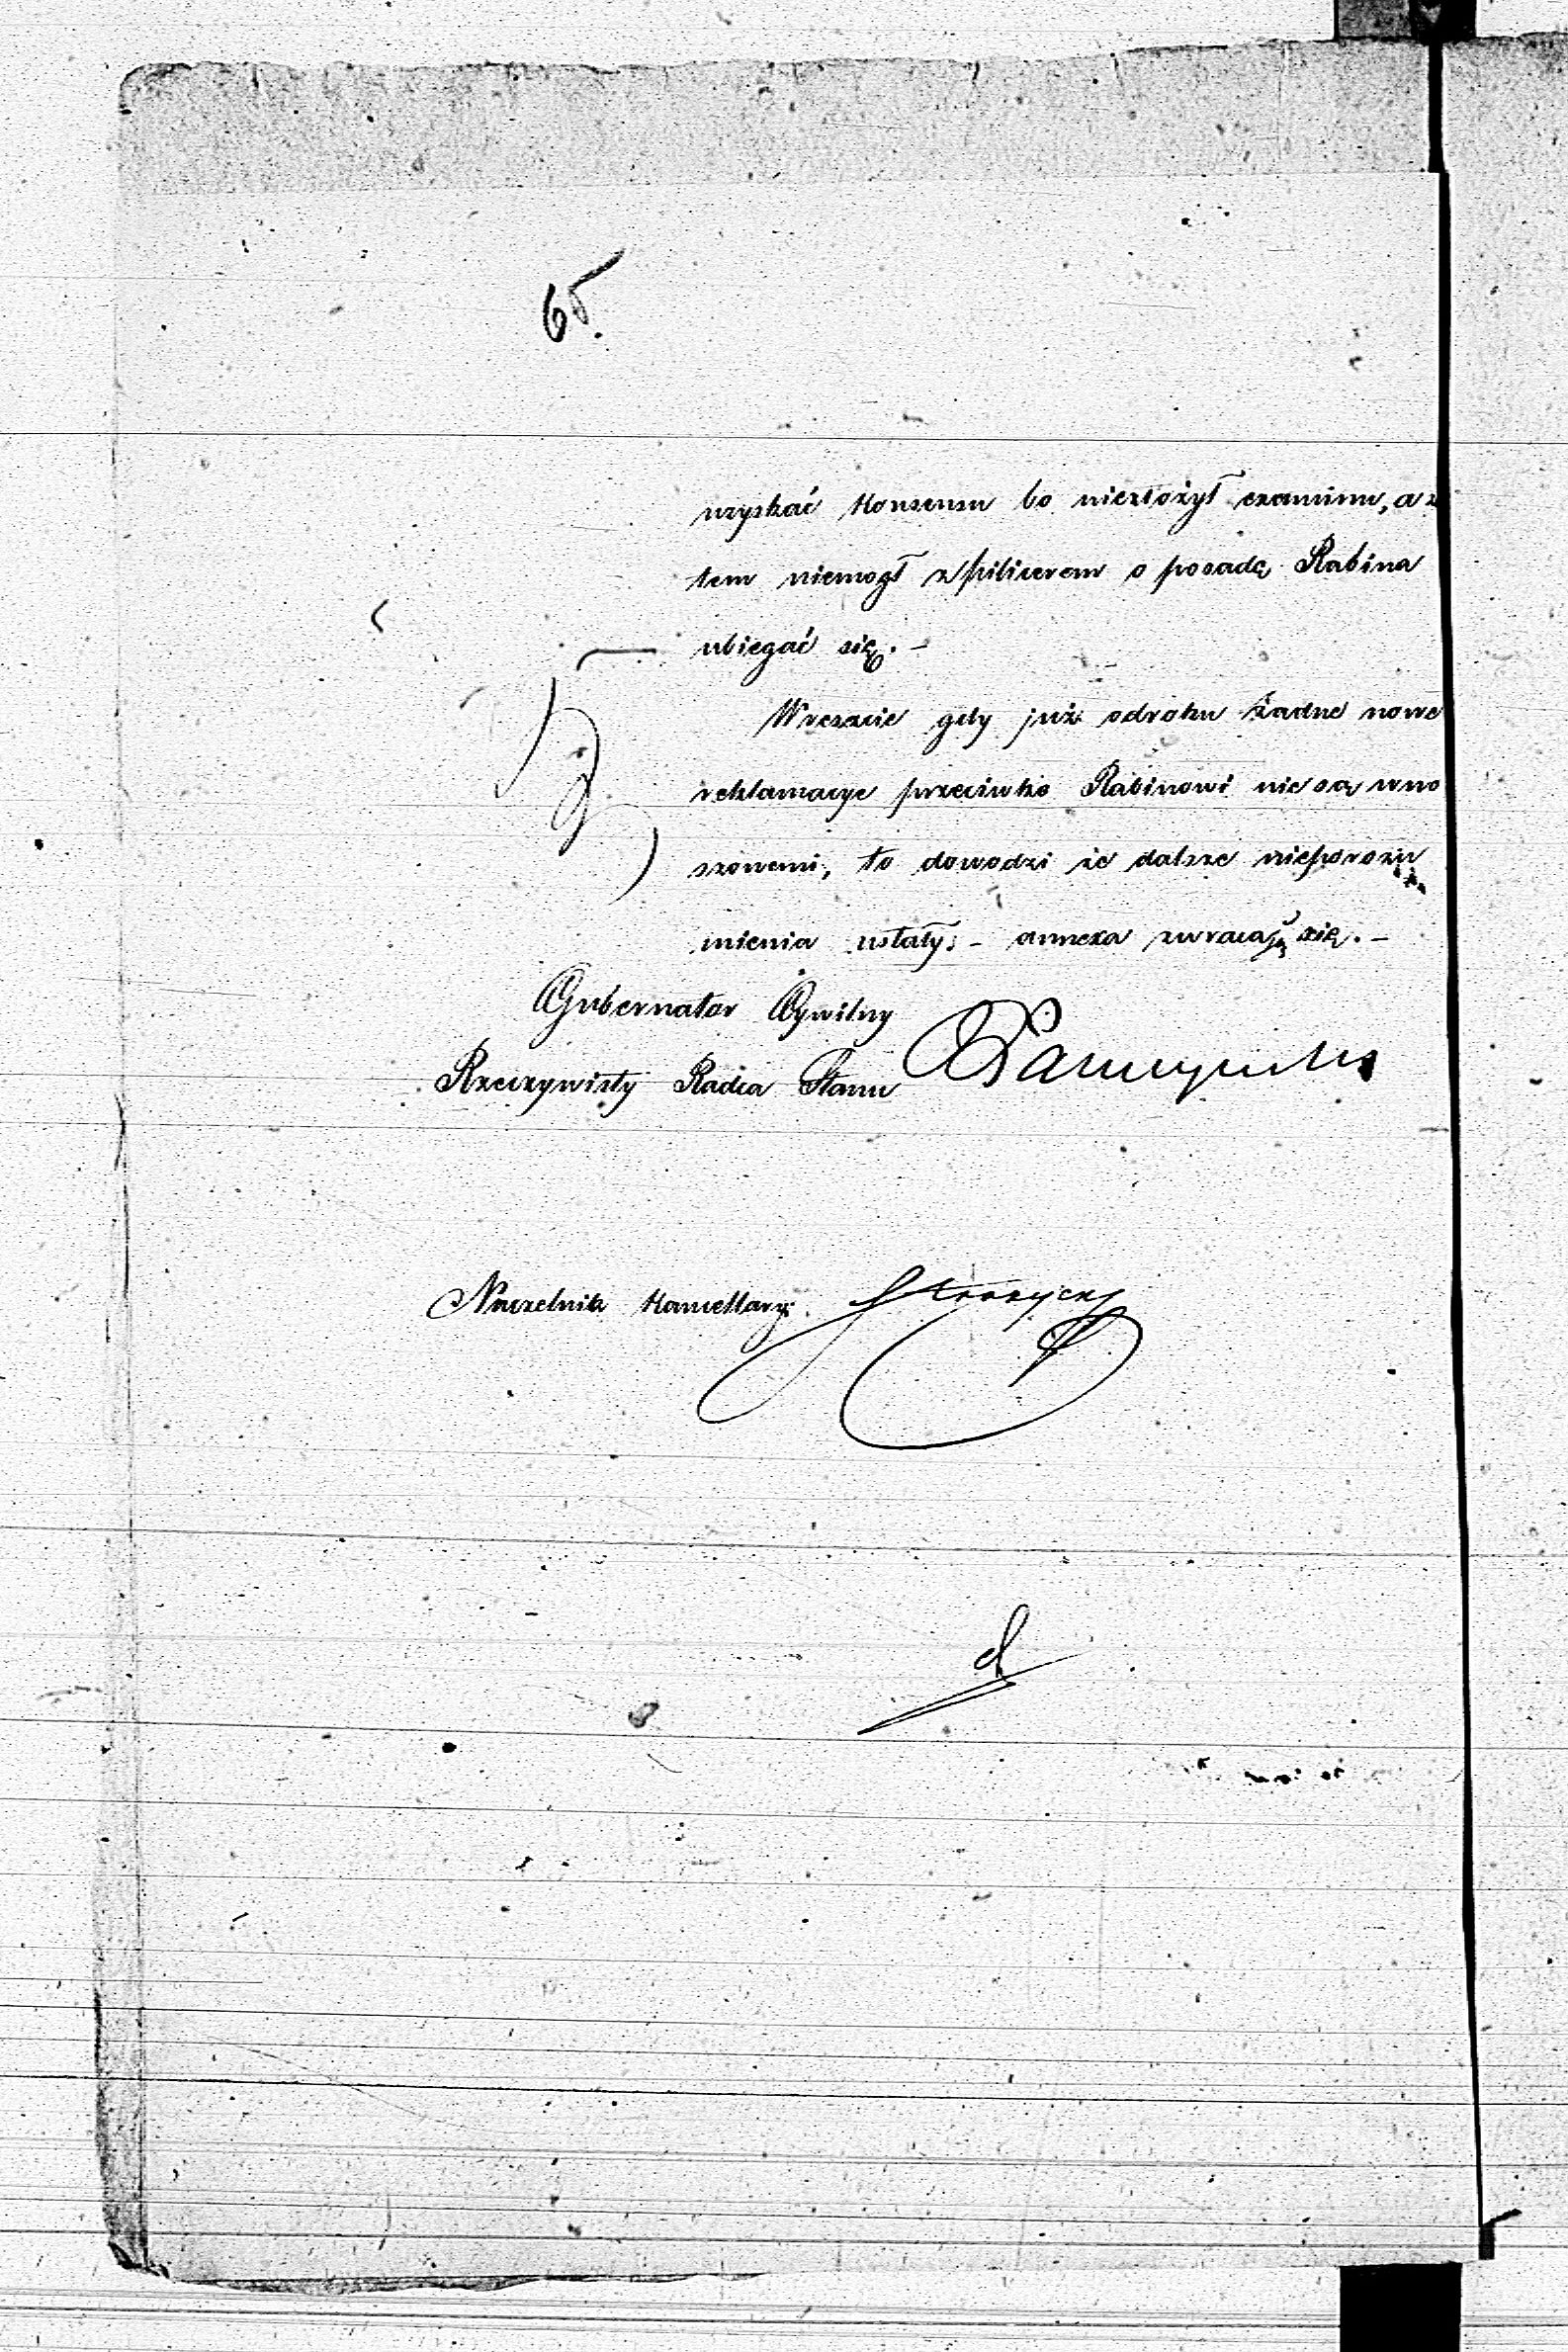 65.
uzyskać konsensu bo niezłożył examinu, a z
tem niemogł z Spilicerem o posadę Rabina
ubiegać się. –
Wreszcie gdy już odroku żadne nowe
reklamacye przeciwko Rabinowi nie są wno
szonemi, to dowodzi że dalsze nieporozu
mienia ustały. – annexa zwracają się. –
Gubernator Cywilny
Rzeczywisty Radca Stanu
Naczelnik Kancellaryi